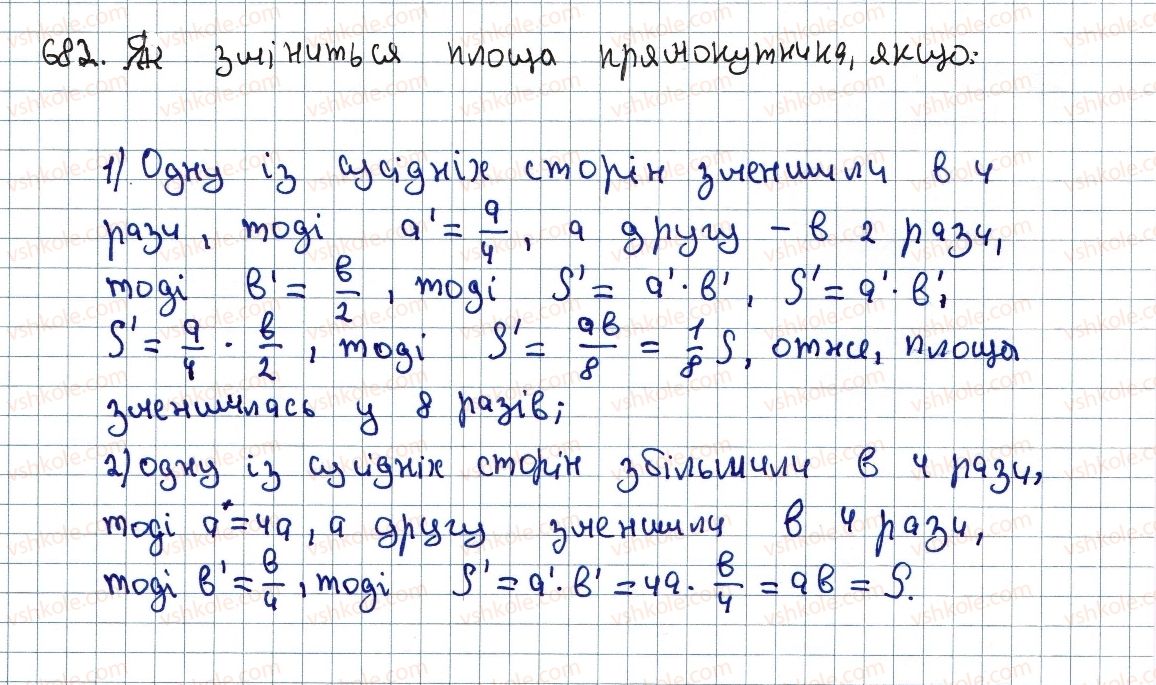 682. Як зміниться площа прямокутника, якщо:
1) Одну із сусідніх сторін зменшили в 4
рази, тоді a' = a/4, а другу – в 2 рази,
тоді в' = в/2, тоді S' = a' · в', S' = a' · в',
S' = a/4 · в/2, тоді S' = aв/8 = 1/8 S, отже, площа
зменшилась у 8 разів;
2) одну із сусідніх сторін збільшили в 4 рази,
тоді a' = 4a, а другу зменшили в 4 рази,
тоді в' = в/4, тоді S' = a' · в' = 4a · в/4 = aв = S.